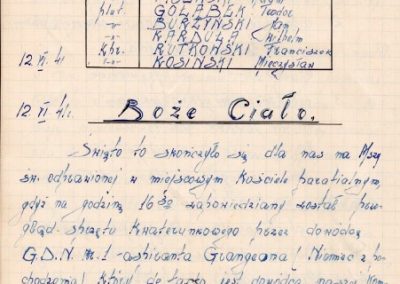 plut. GOŁĄBEK Teodor
-„- BURZYŃSKI Jan
-„- KARDULA Wilhelm
kpr. RUTKOWSKI Franciszek
12 VI 41 -„- KOSIŃSKI Mieczysław
12 VI 41. Boże Ciało.
Święto to skończyło się dla nas na Mszy
św. odprawionej w miejscowym Kościele parafialnym,
gdyż na godzinę 16 30 zapowiedziany został prze-
gląd sprzętu kwaterunkowego przez dowódcę
G.D.N. Nr. 1 - aspiranta Grangeana! Niemiec z po-
chodzenia! który do tego jest dowódcą naszej Kom